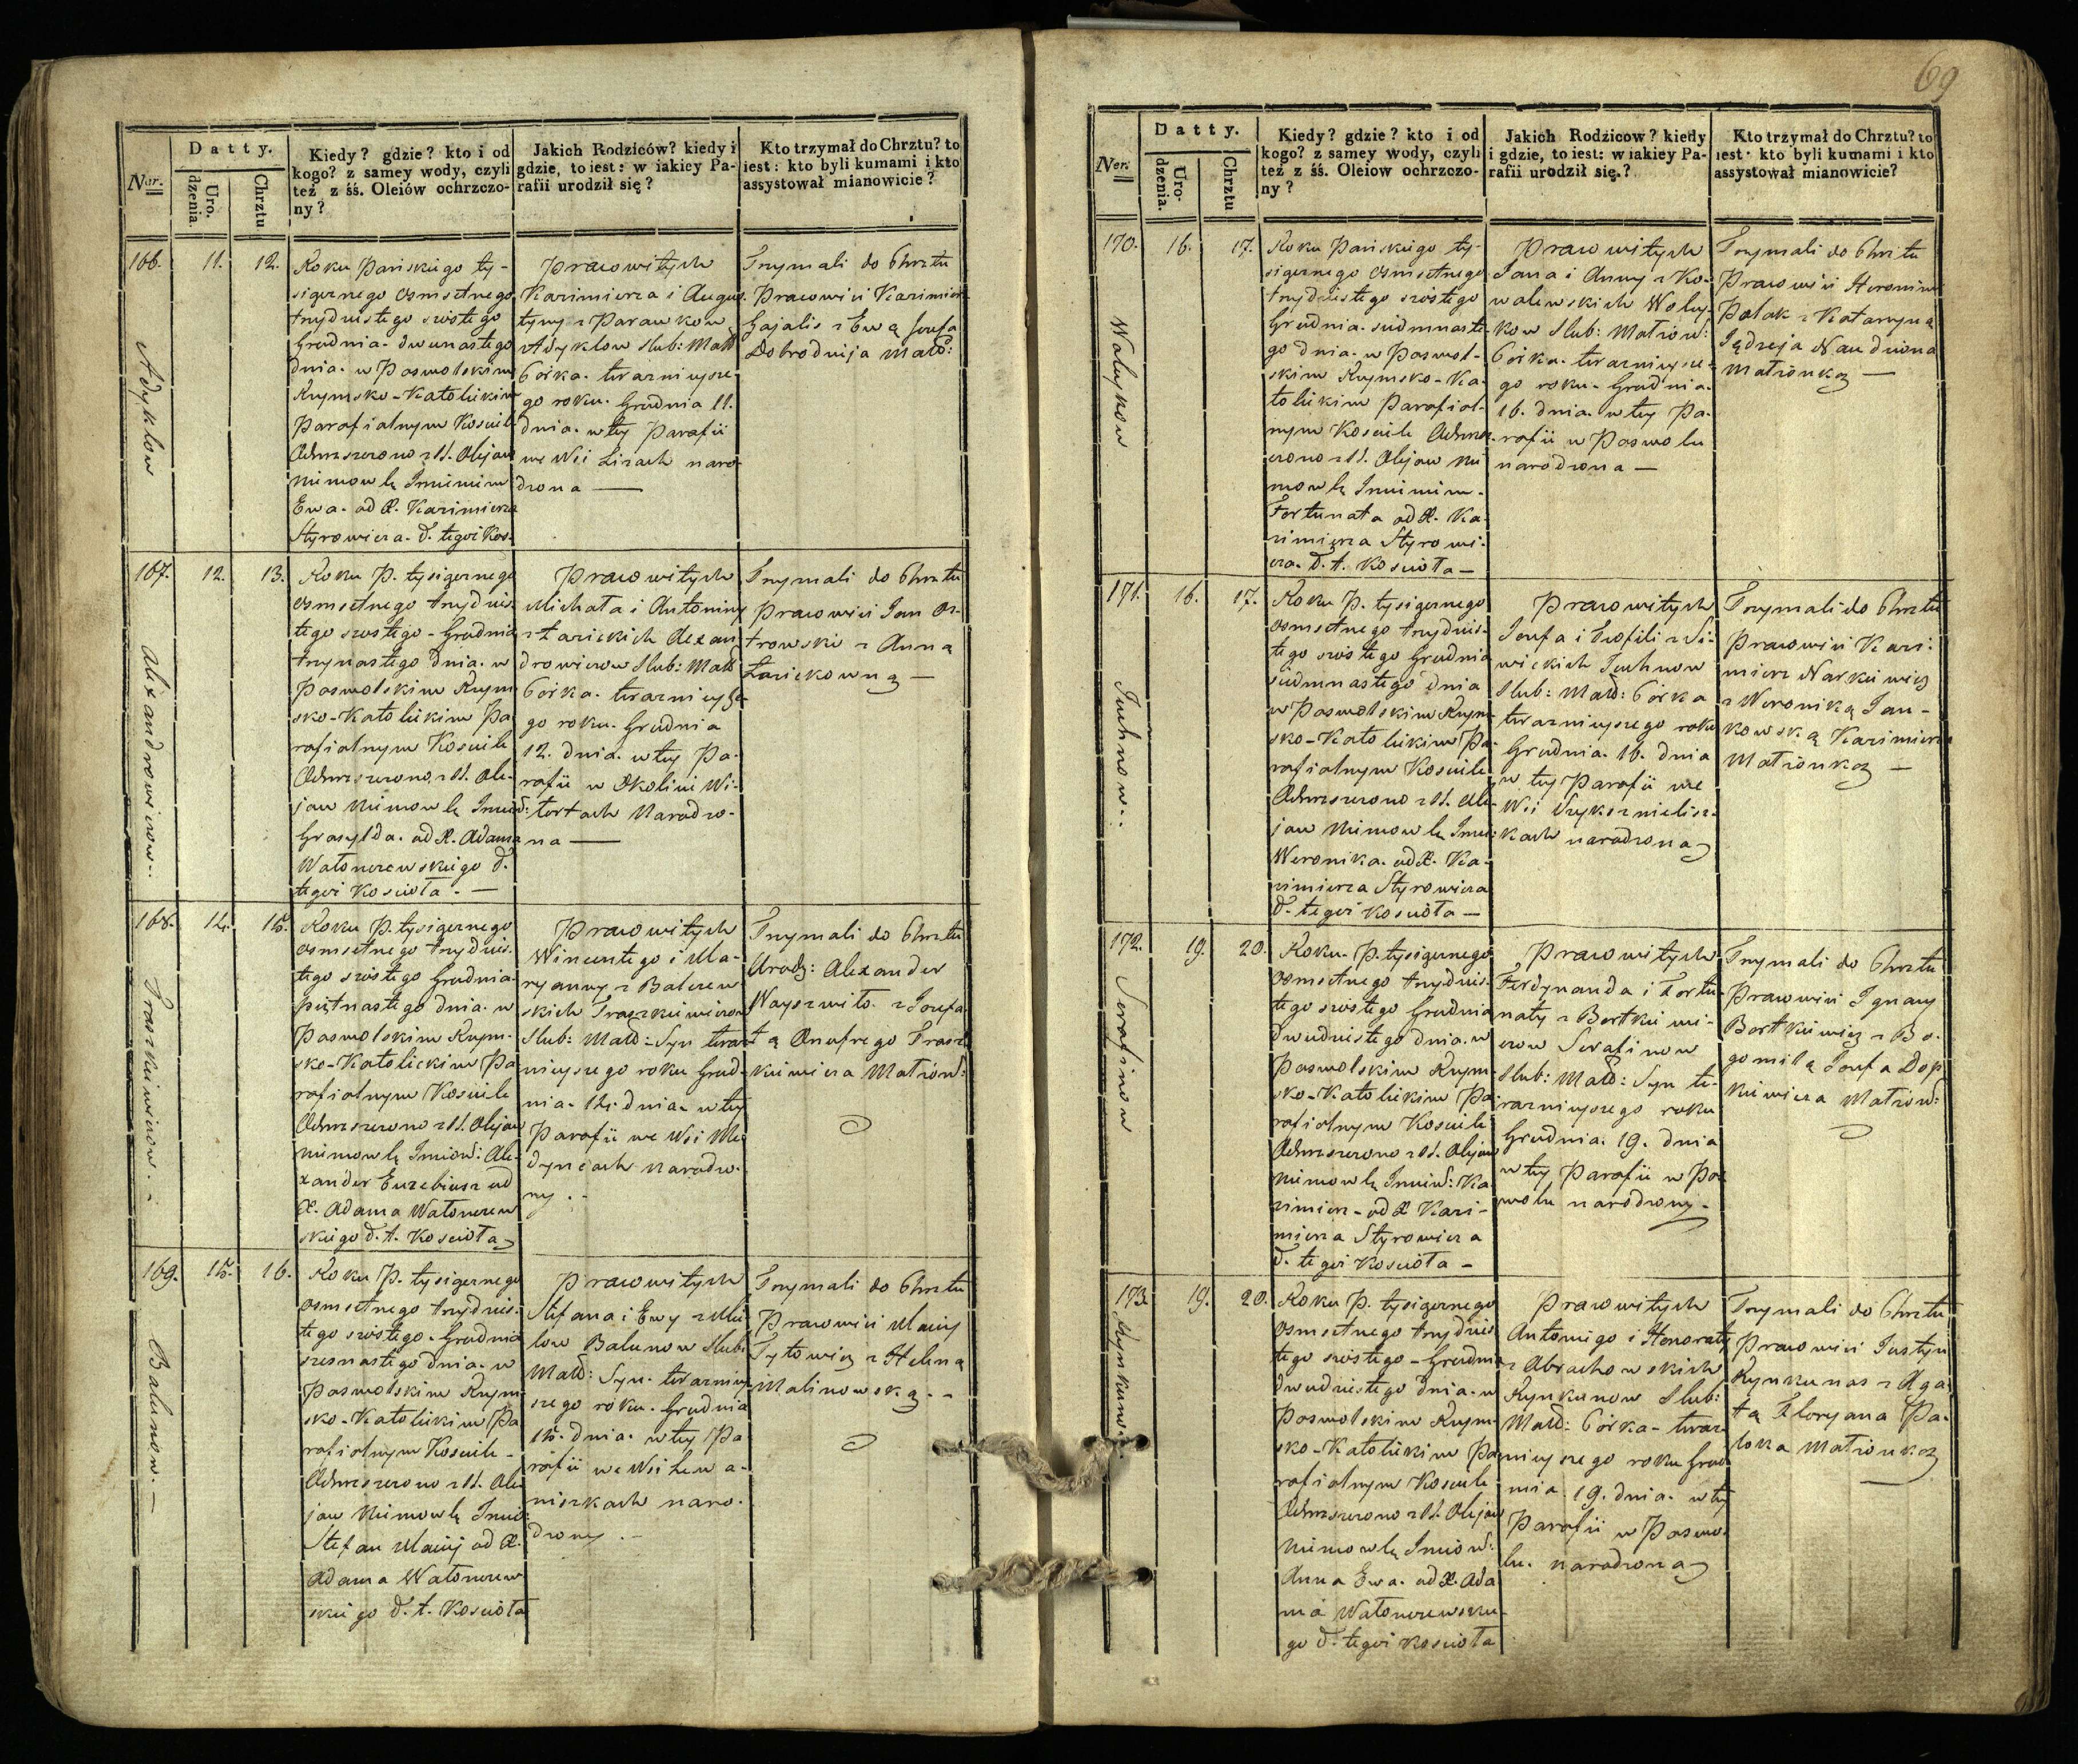 69
Datty.
Ner.
Uro-
dzenia.
Chrztu
Kiedy? gdzie? kto i od
kogo? z samey wody, czyli
też z śś. Oleiów ochrzczo-
ny?
Jakich Rodziców? kiedy i
gdzie, to iest: w iakiey Pa-
rafii urodził się?
Kto trzymał do Chrztu? to
iest: kto byli kumami i kto
assystował mianowicie?
166.
11.
12.
Adyklow
Roku Pańskiego ty-
sięcznego osmsetnego
trzydziestego szóstego
Grudnia dwunastego
dnia w Poswolskim
Rzymsko-Katolickim
Parafialnym Kosciele
Ochrzczono z SS. Olejow
niemowlę Imieniem
Ewa. od X. Kazimierza
Styrowicza. d. tegoż Kos.
Prawowitych
Kazimierza i Augus-
tyny z Parawkow
Adyklow Slub: Małż
Córka. terazniejsze-
go roku. Grudnia 11.
dnia. w tej Parafii
we Wsi Lizach naro-
dzona —
Trzymali do Chrztu
Prawowici Kazimierz
Gajalis z Ewą Jozefa
Dobrodzieja Małż:
167.
12.
13.
Alexandrowiczow
Roku P. tysięcznego
osmsetnego trzydzies-
tego szostego Grudnia
trzynastego dnia w
Poswolskim Rzym-
sko-Katolickim Pa
rafialnym Kosciele
Ochrzczono z SS. Ole-
jow niemowlę Imieni:
Grasylda. od X. Adama
Watonczewskiego d.
tegoż Kosciola. —
Prawowitych
Michała i Antoniny
z Łazickich Alexan
drowiczow Slub: Małż
Córka. terazniejsze-
go roku. Grudnia
12. dnia. w tej Pa-
rafii w Okolicy Wi-
tortach Narodzo-
na —
Trzymali do Chrztu
Prawowici Jan Os-
trowski z Anną
Łazickowną —
168.
14.
15.
Traszkiewiczow
Roku P. tysięcznego
osmsetnego trzydzies-
tego szóstego Grudnia
piętnastego dnia. w
Poswolskim Rzym-
sko-Katolickim Pa
rafialnym Kosciele
Ochrzczono z SS. Olejow
niemowlę Imion: Ale-
xander Euzebiusz od
X. Adama Watonczew
skiego d. t. Kosciola
Prawowitych
Wincentego i Ma-
ryanny z Balczew
skich Traszkiewiczow
Slub: Małż: Syn teraz
niejszego roku Grud-
nia. 14. dnia. w tej
Parafii we Wsi Me
dyncach narodzo-
ny. -
Trzymali do Chrztu
Urodz: Alexander
Wayszwiło. z Jozefa
tą Onufrego Trasz
kiewicza Małżon:
169.
15.
16.
Balunow. —
Roku P. tysięcznego
osmsetnego trzydzies-
tego szóstego. Grudnia
szesnastego dnia. w
Poswolskim Rzym
sko-Katolickim Pa
rafialnym Kosciele -
Ochrzczono z SS. Ole
jow niemowlę Imio:
Stefan Maciej od X.
Adama Watonczew
skiego d. t. Kosciola
Prawowitych
Stefana i Ewy z Mic
low Balunow Slub:
Małż: Syn. terazniej
szego roku. Grudnia
15. dnia. w tej Pa
rafii we Wsi Lewa-
niszkach naro-
dzony. -
Trzymali do Chrztu
Prawowici Maciej
Tytowicz z Heleną
Malinowską. -
Datty.
Ner.
Uro-
dzenia.
Chrztu
Kiedy? gdzie? kto i od
kogo? z samey wody, czyli
też z śś. Oleiow ochrzczo-
ny?
Jakich Rodzicow? kiedy
i gdzie, to iest: w iakiey Pa-
rafii urodził się.?
Kto trzymał do Chrztu? to
iest: kto byli kumami i kto
assystował mianowicie?
170.
16.
17.
Wołykow
Roku Pańskiego ty-
sięcznego Osmsetnego
trzydziestego szóstego
Grudnia. siedmnaste-
go dnia. w Poswol-
skim Rzymsko-Ka-
tolickim Parafial-
nym Kosciele Ochrz-
czono z SS. Olejow nie
mowlę Imieniem.
Fortunata od X. Ka-
zimierza Styrowi-
cza. d. t. Kosciola —
Prawowitych
Jana i Anny z Ko-
walewskich Wołyj-
kow Slub: Małżon:
Córka. terazniejsze-
go roku. Grudnia.
16. dnia. w tej Pa-
rafii w Poswolu
narodzona —
Trzymali do Chrztu
Prawowici Heronim
Polak z Katarzyną
Jędrzeja Naudziona
Małżonką —
171.
16.
17.
Juchnow
Roku P. tysięcznego
osmsetnego trzydzies-
tego szóstego Grudnia
siedmnastego dnia
w Poswolskim Rzym-
sko-Katolickim Pa-
rafialnym Kosciele
Ochrzczono z SS. Ole-
jow niemowlę Imie:
Weronika. od X. Ka-
zimierza Styrowicza
d. tegoż Kosciola —
Prawowitych
Jozefa i Teofili z Si-
wickich Juchnow
Slub: Małż: Córka
terazniejszego roku
Grudnia. 16. dnia
w tej Parafii we
Wsi Szyksznielisz-
kach narodzona
Trzymali do Chrztu
Prawowici Kazi-
mierz Narkiewicz
z Weroniką Jan-
kowską Kazimierza
Małżonką —
172.
19.
20.
Serafinow
Roku P. tysięcznego
osmsetnego trzydzies-
tego szóstego Grudnia
dwudziestego dnia. w
Poswolskim Rzym-
sko-Katolickim Pa-
rafialnym Kosciele
Ochrzczono z SS. Olejow
niemowlę Imien: Ka-
zimierz - od X Kazi-
mierza Styrowicza
d. tegoż Kosciola —
Prawowitych
Ferdynanda i Fortu-
naty z Bortkiewi-
czow Serafinow
Slub: Małż: Syn te-
razniejszego roku
Grudnia. 19. dnia
w tej Parafii w Pos-
wolu narodzony.
Trzymali do Chrztu
Prawowici Ignacy
Bortkiewicz z Bo-
gomilą Jozefa Dop
kiewicza Małżon:
173.
19.
20.
Rynkunow
Roku P. tysięcznego
osmsetnego trzydzies
tego szóstego - Grudnia
dwudziestego dnia. w
Poswolskim Rzym-
sko-Katolickim Pa
rafialnym Kosciele
Ochrzczono z SS. Olejow
niemowlę Imion:
Anna Ewa. od X. Ada
ma Watonczewskie-
go d. tegoż Kosciola
Prawowitych
Antoniego i Honoraty
z Abrachowskich
Rynkunow Slub:
Małż: Córka - teraz-
niejszego roku Grud
nia 19. dnia. w tej
Parafii w Poswo-
lu. narodzona
Trzymali do Chrztu
Prawowici Justyn
Rynkunas z Aga
tą Floryana Pa-
loka Małżonką